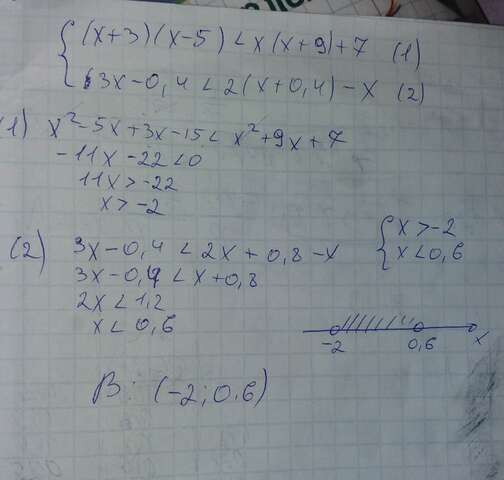 { (x+3)(x-5) < x(x+9)+7 (1)
3x-0,4 < 2(x+0,4)-x (2)
1) x²-5x+3x-15 < x²+9x+7
-11x-22<0
11x>-22
x>-2
(2) 3x-0,4 < 2x+0,8-x
3x-0,4 < x+0,8
2x<1,2
x<0,6
{ x>-2
x<0,6
-2 0,6 x
В: (-2; 0.6)